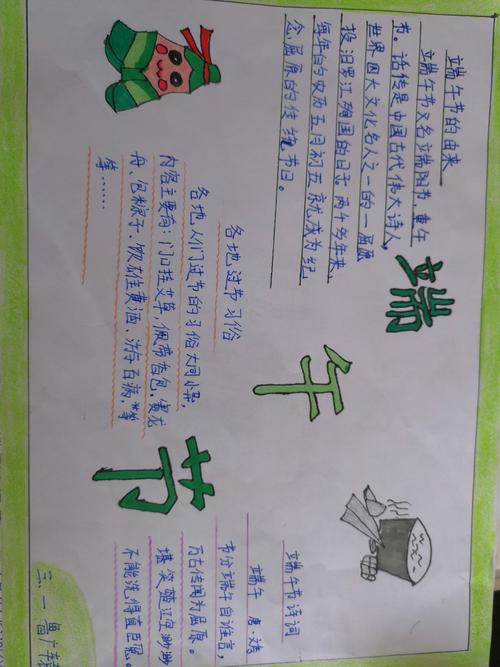 端午节的由来
端午节又名端阳节、重午
节。话传是中国古代伟大诗人、
世界四大文化名人之一的一屈原
投汨罗江殉国的日子,两千多年来
每年的农历五月初五就成为纪
念屈原的传统节日。
端
午
节
各地过节习俗
各地人们过节的习俗大同小异,
内容主要有:门口挂艾草,佩带香包,赛龙
舟、包粽子、饮雄黄酒、游百病,
等……
端午节诗词
端午 唐·
节分端午自谁言,
万古传闻为屈原。
堪笑楚江空渺渺
不能洗得直臣冤。
三、一